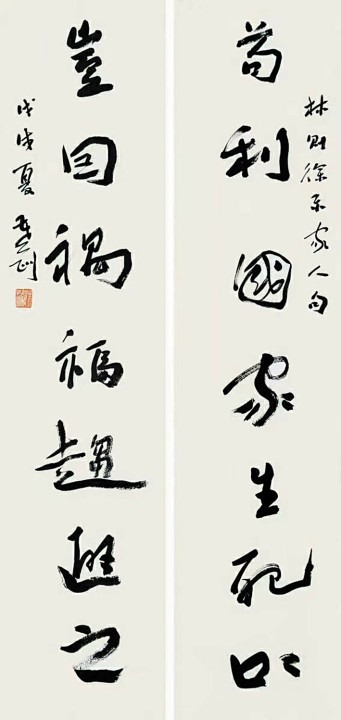 林則徐示家人句
苟利國家生死以
豈因禍福趨避之
戊戌夏